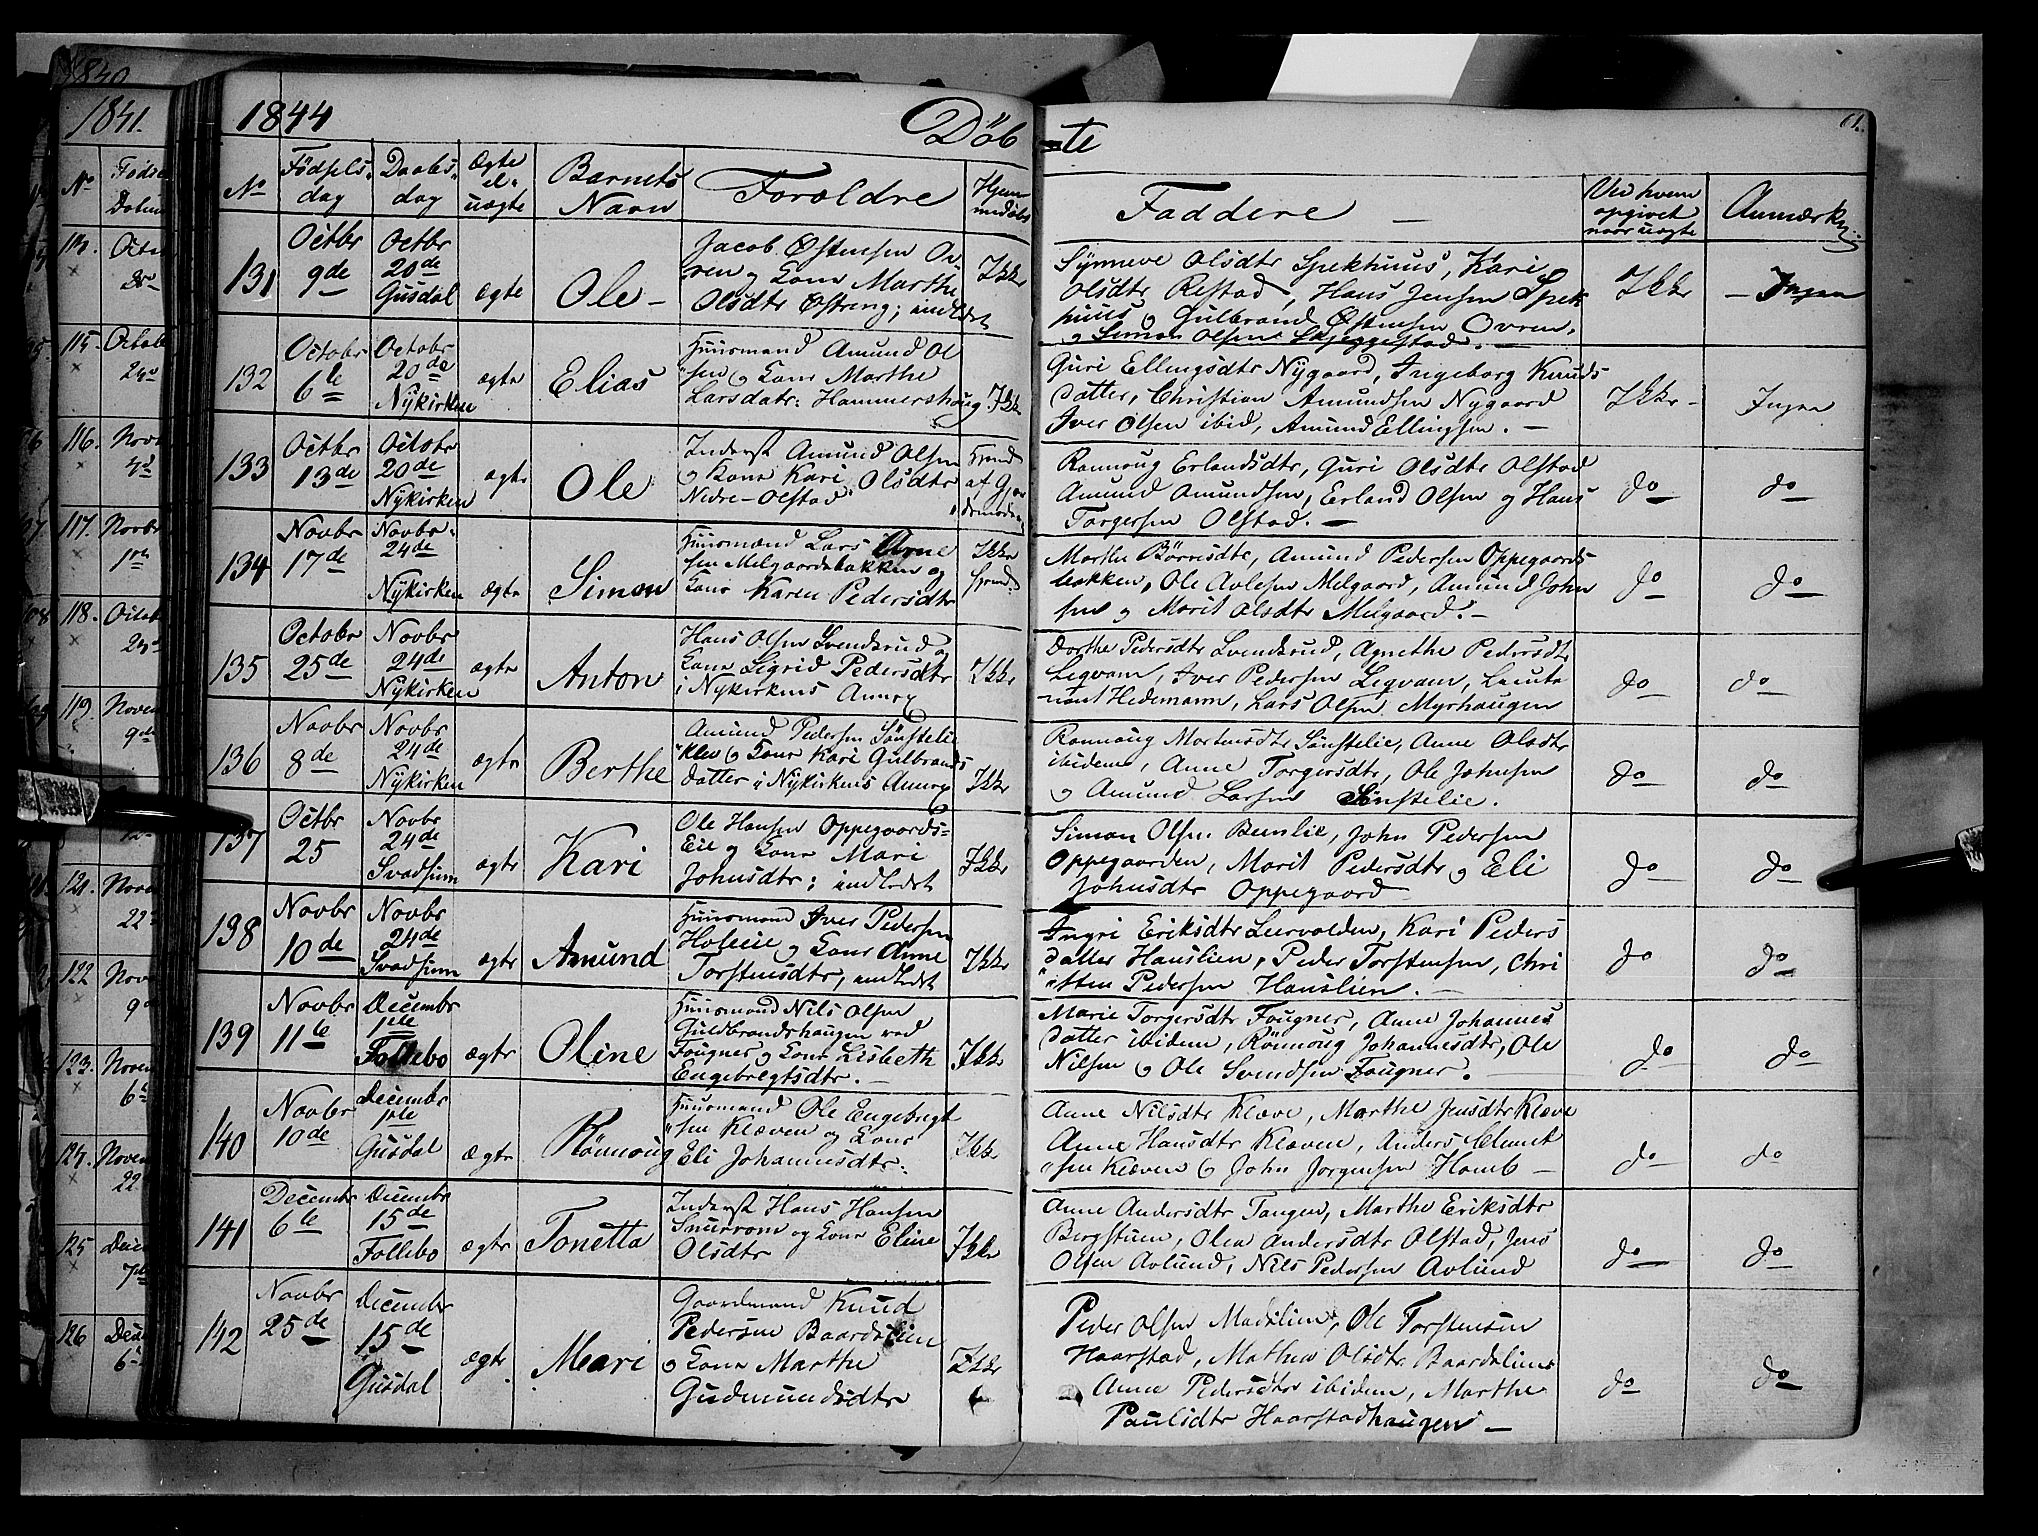 1840
1841.
No
Fødse
Datum
115.
Octob
116.
Nov
117.
Novbr
118.
Octob
119.
Noven
9de
121.
Noven
22
122
Nov
123.
Noven
6te
124.
Noven
22
125
Dece
7de
126
Dece
6te
1844
Döb
te
61.
No
Födsels-
dag
Daabs-
dag
Ægte
el.
uægte
Barnets
Navn
Forældre
Hjem
medøbt
Faddere —
Ved hvem
opgivet
naar uægte
Anmærk.
131
Octbr
9de
Octbr
20de
Gusdal
ægte
Ole –
Jacob Østensen Ov
ren og Kone Marthe
Olsdtr Østreng; indledet
Ikke
Synneve Olsdtr Spekhuus, Kari
Olsdtr Restad, Hans Jensen Spek
huus og Gulbrand Østensen Ovren,
og Simen Olsen Skjeggestad. —
Ikke
— Ingen
132
Octobr
6te
Octobr
20de
Nykirken
ægte
Elias
Huusmand Amund Ol
sen og Kone Marthe
Larsdatr: Hammershoug
Ikke
Guri Ellingsdtr Nygaard, Ingeborg Knuds-
datter, Christian Amundsen Nygaard
Iver Olsen ibid, Amund Ellingsen. —
Ikke –
Ingen
133
Octbr
13de
Octobr
20de
Nykirken
ægte
Ole
Inderst Amund Olsen
og Kone Kari Olsdtr
Nedre-Olstad
af Gjor
demodr
Rannoug Erlandsdtr, Guri Olsdtr Olstad
Amund Amundsen, Erland Olsen og Hans
Torgersen Olstad. —
do
do
134
Novbr
17de
Novbr.
24de
Nykirken
ægte
Simon
Huusmand Lars Arne
sen Melgaardsbakken og
Kone Karen Pedersdtr
Ikke
Marthe Börresdtr, Amund Pedersen Oppegaards
bakken, Ole Avlesen Melgaard, Amund John
sen og Marit Olsdtr Melgaard. –
do
do
135
Octobr
25de
Novbr
24de
Nykirken
ægte
Anton
Hans Olsen Svendsrud og
Kone Sigrid Pedersdtr
i Nykirkens Annex
Ikke
Dorthe Pedersdtr Svendsrud, Agnethe Pedersdtr
Segvam, Iver Pedersen Segvam, Lieute
nant Hedemann, Lars Olsen Myrhaugen
do
do
136
Novbr
8de
Novbr
24de
Nykirken
ægte
Berthe
Amund Pedersen Sönstelie
klev og Kone Kari Gulbrands
datter i Nykirkens Annex
Ikke
Rannoug Mortensdtr Sönstelie, Anne Olsdtr
ibidem, Anne Torgersdtr, Ole Johnsen
og Amund Larsen Sönstelie.
do
do
137
Octbr
25
Novbr
24de
Svadsum
ægte
Kari
Ole Hansen Oppegaards-
Eie og Kone Mari
Johnsdtr; indledet
Ikke
Simon Olsen Bunlie, John Pedersen
Oppegaarden, Marit Pedersdtr og Eli
Johnsdtr Oppegaard
do
do
138
Novbr
10de
Novbr
24de
Svadsum
ægte
Amund
Huusmand Iver Pedersen
Hofeie og Kone Anne
Torstensdtr, indledet
Ikke
Ingri Eriksdtr Leervolden, Kari Peders
datter Hauslien, Peder Torstensen, Chri
sten Pedersen Hauslien. —
do
do
139
Novbr
11te
Decembr
1ste
Follebo
ægte
Oline
Huusmand Nils Olsen
Guldbrandshaugen ved
Fougner og Kone Lisbeth
Engebregtsdtr. —
Ikke
Marie Torgersdtr Fougner, Anne Johannes
datter ibidem, Rönnoug Johannesdtr, Ole
Nilsen og Ole Svendsen Fougner.
do
do
140
Novbr
10de
Decembr
1ste
Gusdal
ægte
Rönnoug
Huusmand Ole Engebregt
sen Klæven og Kone
Eli Johannesdtr.
Ikke
Anne Nilsdtr Klæve, Marthe Jensdtr Klæve
Anne Hansdtr Klæven, Anders Clemet
sen Klæven og John Jorgensen Homb –
do
do
141
Decembr
6te
Decembr
15de
Follebo
ægte
Tonetta
Inderst Hans Hansen
Snurrom og Kone Eline
Olsdtr
Ikke
Anne Andersdtr Tangen, Marthe Eriksdtr
Bergstuen, Olea Andersdtr Olstad, Jens
Olsen Avlund, Nils Pedersen Avlund
do
do
142
Novbr
25de
Decembr
15de
Gusdal
ægte
Mari
Gaardmand Knud
Pedersen Baardslien
og Kone Marthe
Gudmundsdtr
Ikke
Peder Olsen Madslien, Ole Torstensen
Haarstad, Mathea Olsdtr Baardslien
Anne Pedersdtr ibidem, Marthe
Paulsdtr Haarstadhaugen —
do
do